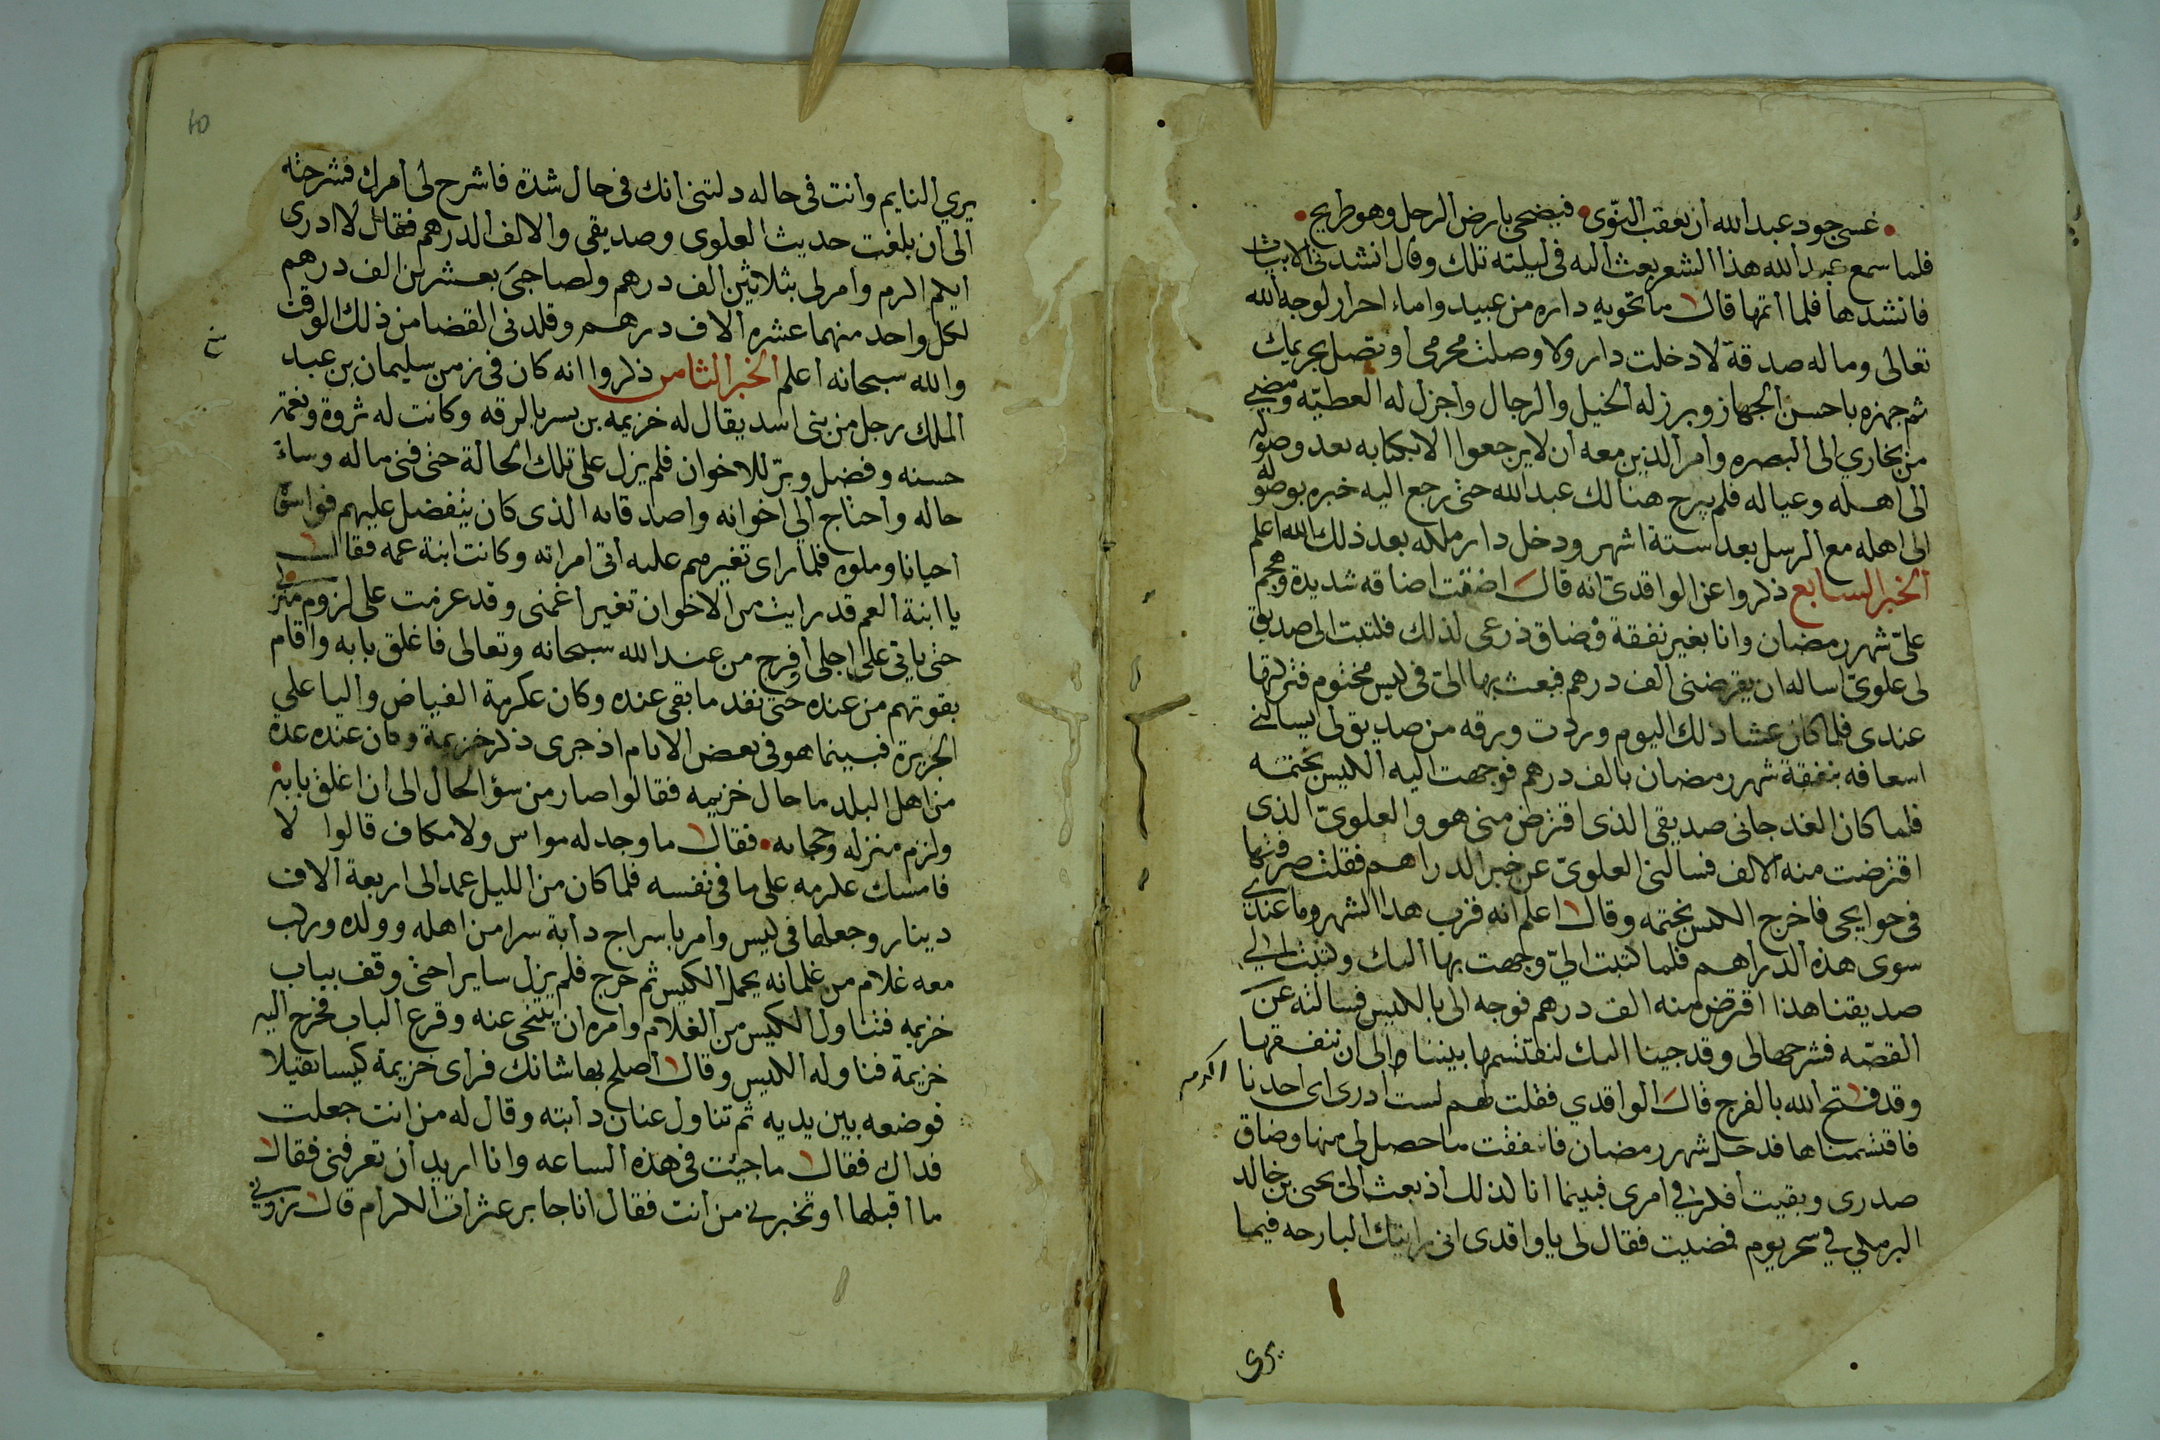 عسى جود عبد الله أن يعقب النّوى فيضحى بارض الرحل وهو طريح
فلما سمع عبد الله هذا الشعر بعث اليه في ليلته تلك وقال انشدني الابيات
فانشدها فلما أتمها قال ما تحويه داره من عبيد واماء احرار لوجه الله
تعالى وماله صدقة لا دخلت دار ولا وصلت محرمي أو تصل بحريمك
ثم جهزه باحسن الجهاز وبرز له الخيل والرجال وأجزل له العطيّه ومضى
من بخارى الى البصره وأمر الذين معه أن لا يرجعوا الا بكتابه بعد وصوله
الى اهله وعياله فلم يبرح هنالك عبد الله حتى رجع اليه خبره بوصوله
الى اهله مع الرسل بعد ستة اشهر ودخل دار ملكه بعد ذلك الله اعلم
الخبر السابع ذكروا عن الواقدى انه قال اضقت اضاقه شديدة وهجم
علىّ شهر رمضان وانا بغير نفقة فضاق ذرعى لذلك فكتبت الى صديق
لى علوىّ اساله ان يقرضنى الف درهم فبعث بها الىّ في كيس مختوم فتركتها
عندى فلما كان عشا ذلك اليوم وردت ورقه من صديق لى يسالنى
اسعافه بنفقة شهر رمضان بالف درهم فوجهت اليه الكيس بختمه
فلما كان الغد جانى صديقى الذى اقترض منى هو والعلوىّ الذى
اقترضت منه الالف فسالنى العلوىّ عن خبر الدراهم فقلت صرفتها
فى حوايجى فاخرج الكيس بختمه وقال اعلم انه قرب هذا الشهر وما عندى
سوى هذه الدراهم فلما كتبت الىّ وجهت بها اليك وكتبت الى
صديقنا هذا اقترض منه الف درهم فوجه الى بالكيس فسالته عن
القصّه فشرحها لى وقد جينا اليك لنقتسمها بيننا والى ان ننفقها
وقد فتح الله بالفرج قال الواقدي فقلت لهم لست ادرى اى احدنا اكرم
فاقتسمناها فدخل شهر رمضان فانفقت ما حصل لى منها وضاق
صدرى وبقيت أفكر في أمرى فبينما انا لذلك اذ بعث الىّ يحيى بن خالد
البرمكي في سحر يوم فمضيت فقال لى يا واقدى انى رايتك البارحه فيما
يري النايم وأنت فى حاله دلتنى انك فى حال شدة فاشرح لى أمرك فشرحته
الى أن بلغت حديث العلوى وصديقى والالف الدرهم فقال لا ادرى
أيكم اكرم وأمر لى بثلاثين الف درهم ولصاحبىّ بعشرين الف درهم
لكل واحد منهما عشره آلاف درهم وقلدنى القضا من ذلك الوقت
والله سبحانه اعلم الخبر الثامن ذكروا انه كان فى زمن سليمان بن عبد
الملك رجل من بنى اسد يقال له خزيمه بن بسر بالرقه وكانت له ثروة ونعمة
حسنه وفضل وبرّ للاخوان فلم يزل على تلك الحالة حتى فنى ماله وساء
حاله وأحتاج الى اخوانه واصدقايه الذى كان يتفضل عليهم فواسوه
احيانا وملوه فلما راى تغيرهم عليه أتى امراته وكانت ابنة عمه فقال
يا ابنة العم قد رايت من الاخوان تغير أغمنى وقد عزمت على لزوم منزلى
حتى ياتى على اجلى أو فرج من عند الله سبحانه وتعالى فاغلق بابه واقام
بقوتهم من عنده حتى نفد ما بقى عنده وكان عكرمة الفياض واليا على
الجزيرة فبينما هو فى بعض الايام اذ جرى ذكر خزيمة وكان عنده عدة
من اهل البلد ما حال خزيمه فقالوا صار من سؤ الحال الى ان اغلق بابه
ولزم منزله فقال ما وجد له مواس ولا مكاف قالوا لا
فامسك عكرمه على ما فى نفسه فلما كان من الليل عمد الى اربعة آلاف
دينار وجعلها فى كيس وأمر باسراج دابة سرا من اهله وولده وركب
معه غلام من غلمانه يحمل الكيس ثم خرج فلم يزل سايرا حتى وقف بباب
خزيمه فتناول الكيس من الغلام وأمره ان يتنحى عنه وقرع الباب فخرج اليه
خزيمة فناوله الكيس وقال أصلح بها شانك فراى خزيمة كيسا ثقيلا
فوضعه بين يديه ثم تناول عنان دابته وقال له من انت جعلت
فداك فقال ما جيئت فى هذه الساعه وانا اريد أن تعرفنى فقال
ما اقبلها أو تخبرنى من أنت فقال أنا جابر عثرات الكرام قال زدنى